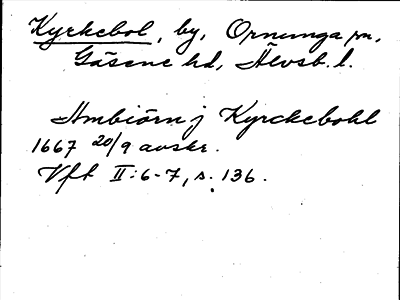 Kyrkebol, by, Ornunga sn,
Gäsene hd, Älvsb. l.
Ambiörn j Kyrckebohl
1667 20/9 avskr.
Vft II: 6-7, s. 136.